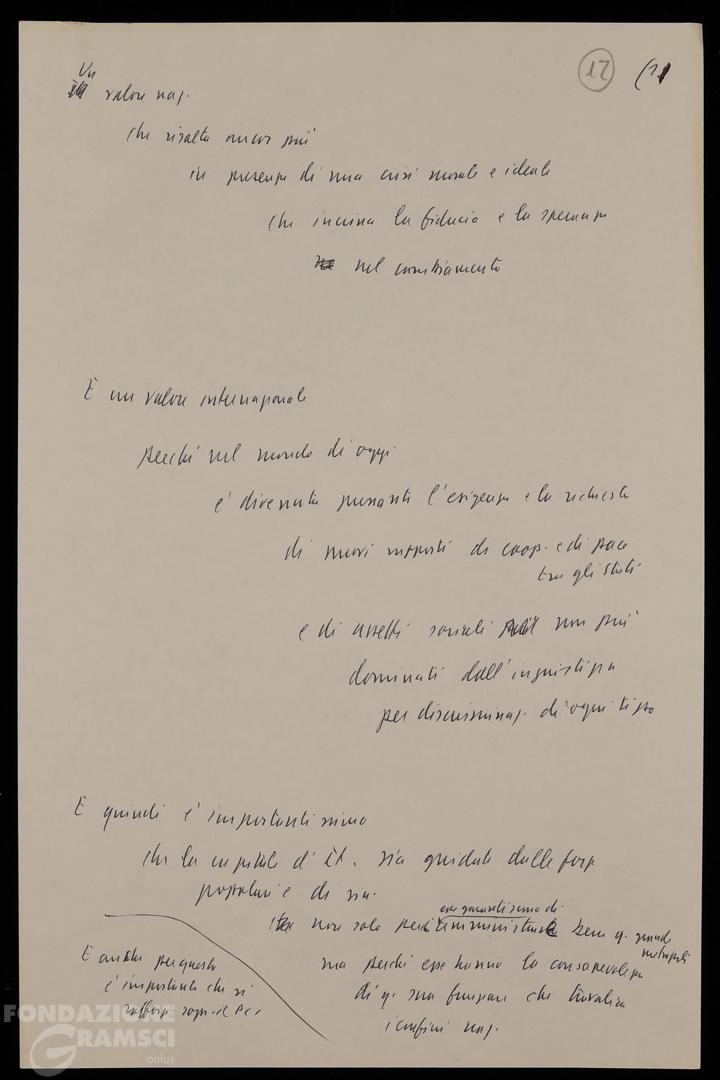 12
Un
valore naz.
che risalta ancor più
in presenza di una crisi morale e ideale
che incrina la fiducia e la speranza
nel cambiamento
È un valore internazionale
perché nel mondo di oggi
è divenuta pressante l'esigenza e la richiesta
di nuovi rapporti di coop. e di pace
tra gli Stati
e di assetti sociali non più
dominati dall'ingiustizia
per discriminaz. di ogni tipo
E quindi è importantissimo
che la capitale d'It. sia guidata dalle forze
popolari e di sin.
non solo perché amministrano bene q. grande
metropoli
ma perché esse hanno la consapevolezza
di q. sua funzione che travalica
i confini naz.
E anche per questo
è importante che si
rafforzi sopr. il Pci
FONDAZIONE
GRAMSCI
onlus